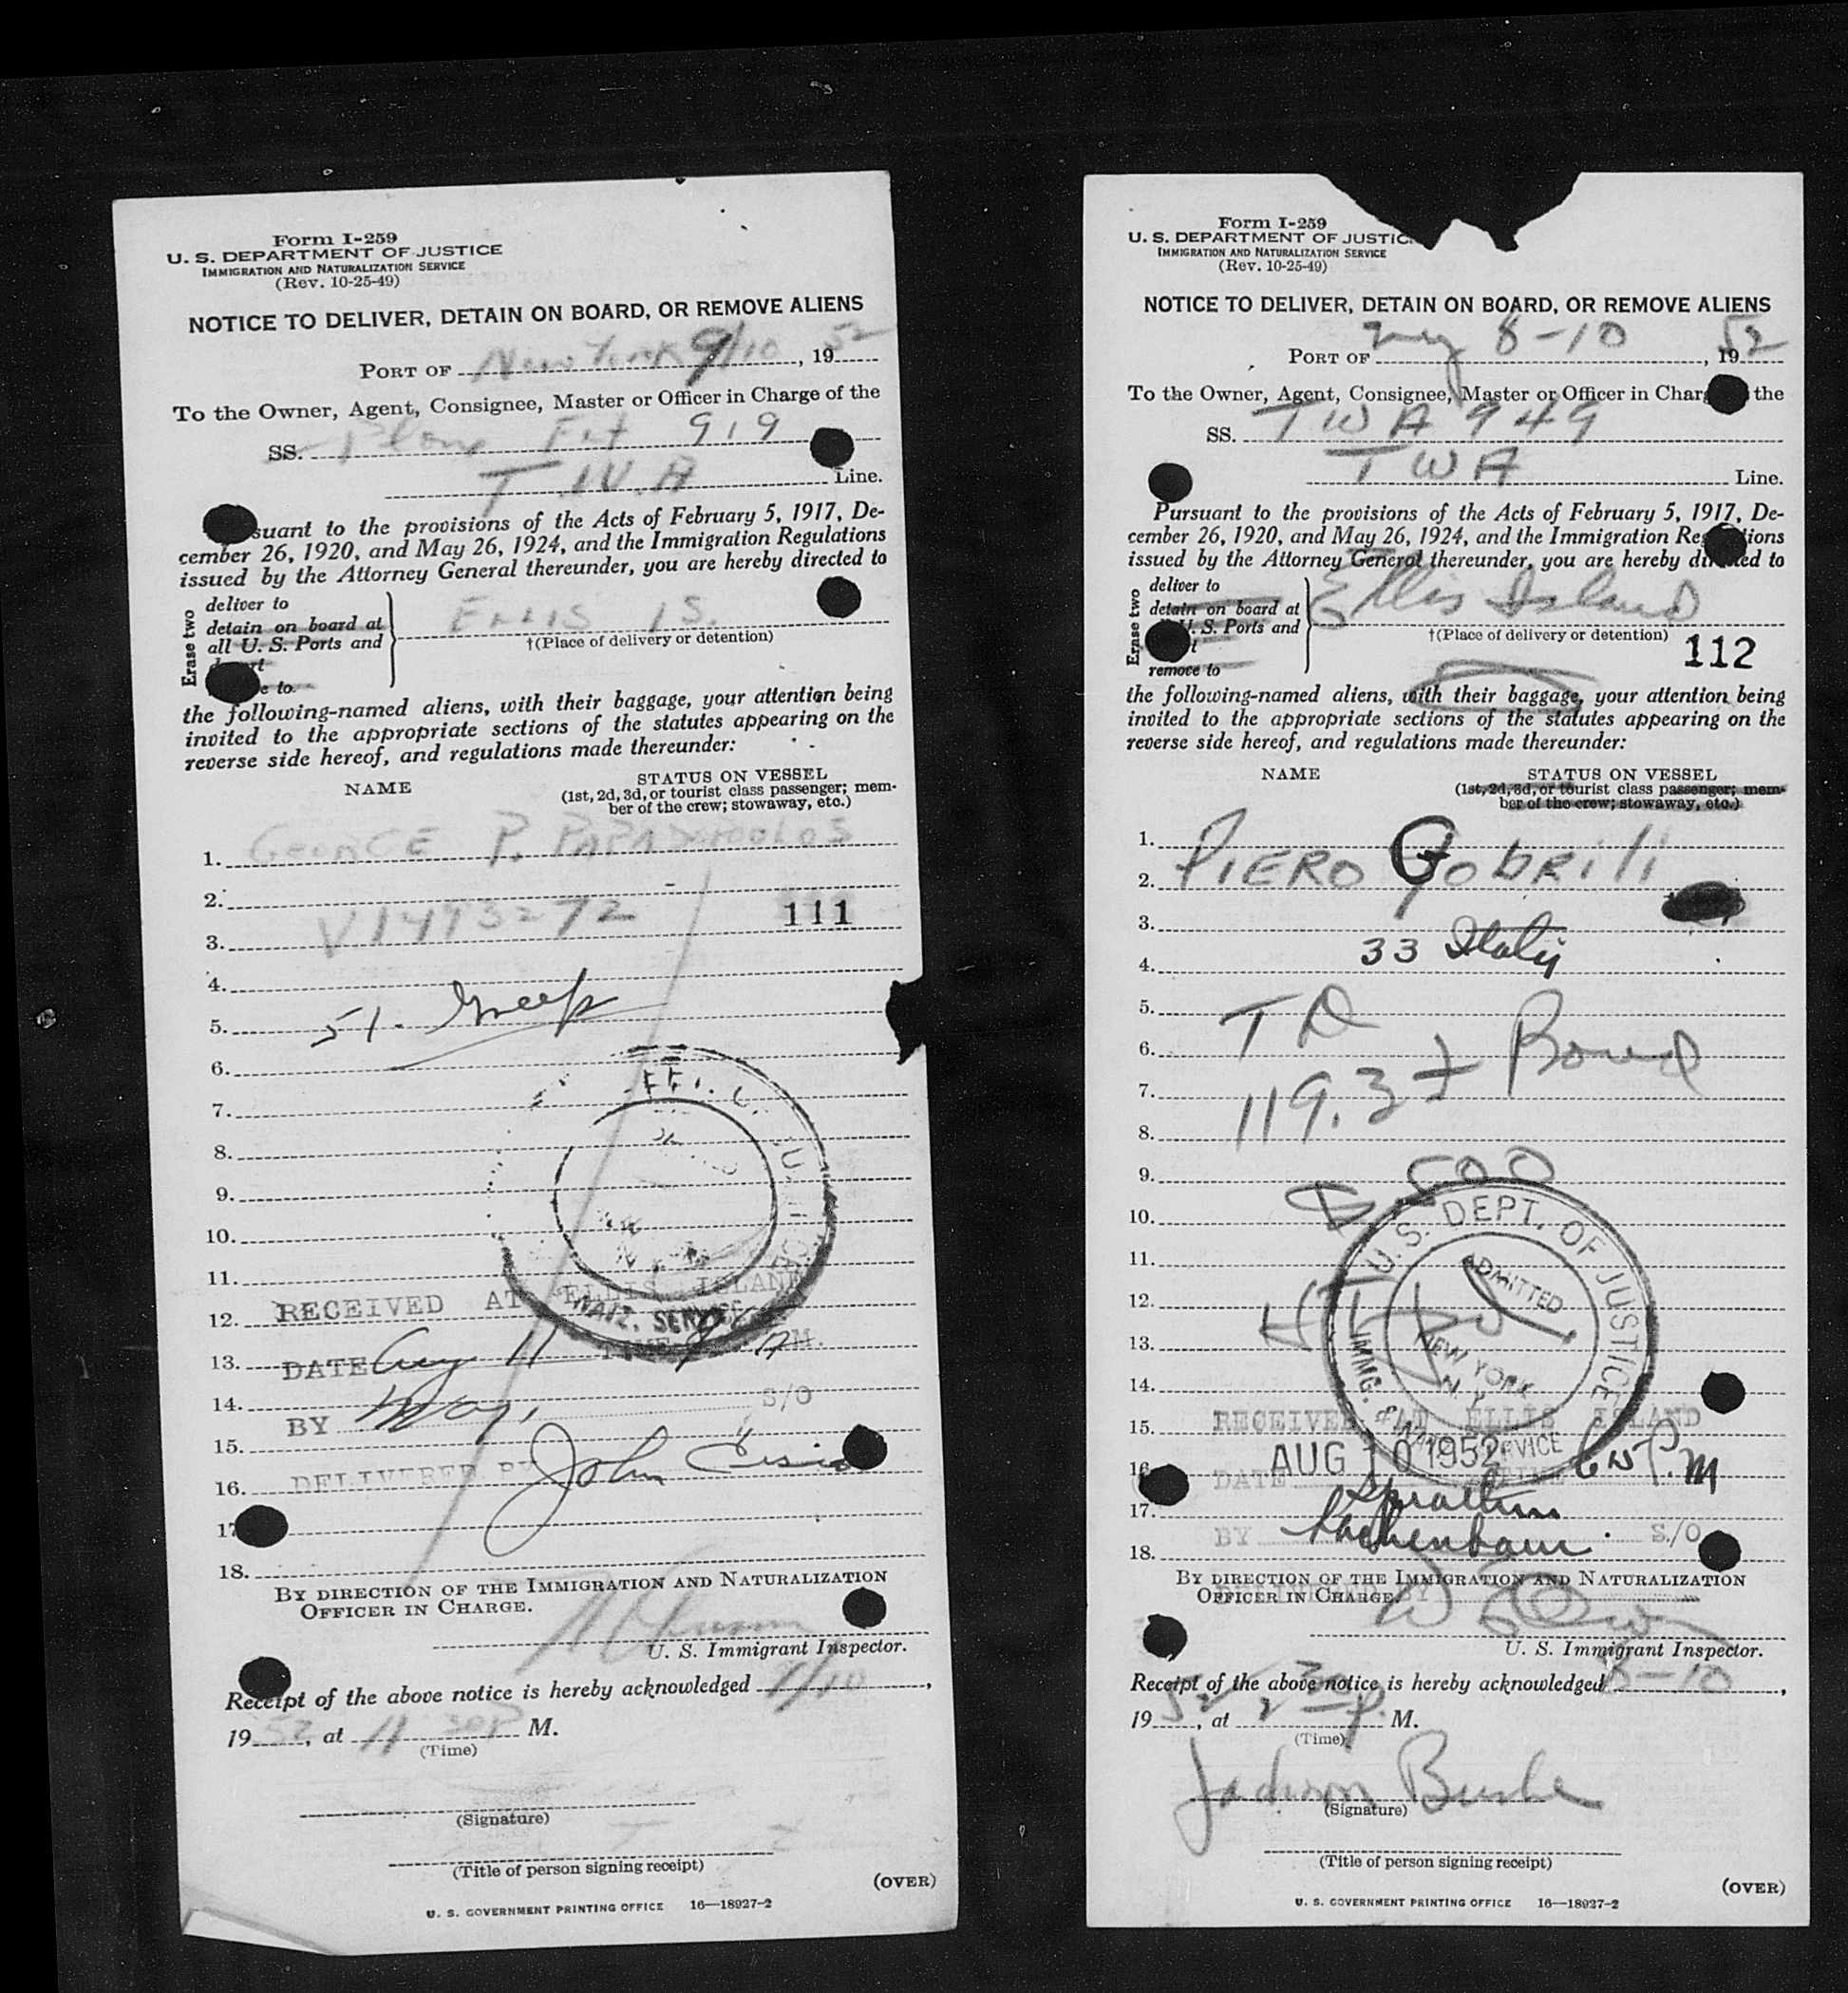 Form I-259
U. S. DEPARTMENT OF JUSTICE
IMMIGRATION AND NATURALIZATION SERVICE
(Rev. 10-25-49)
NOTICE TO DELIVER, DETAIN ON BOARD, OR REMOVE ALIENS
PORT OF New York 9/10, 1952
To the Owner, Agent, Consignee, Master or Officer in Charge of the
SS. Plane Flt 919
T.W.A Line.
suant to the provisions of the Acts of February 5, 1917, De-
cember 26, 1920, and May 26, 1924, and the Immigration Regulations
issued by the Attorney General thereunder, you are hereby directed to
Erase two
deliver to
detain on board at
all U. S. Ports and
ELLIS IS.
†(Place of delivery or detention)
e to
the following-named aliens, with their baggage, your attention being
invited to the appropriate sections of the statutes appearing on the
reverse side hereof, and regulations made thereunder:
NAME
STATUS ON VESSEL
(1st, 2d, 3d, or tourist class passenger; mem-
ber of the crew; stowaway, etc.)
1. GEORGE P.
2.
3. 111
4.
5. 51.
6.
7.
8.
9.
10.
11.
12. RECEIVED AT ELLIS ISLAND
SERVICE
13. DATE Aug 11 TIME M.
14. S/O
BY
15.
DELIVERED BY John
16.
17
18.
BY DIRECTION OF THE IMMIGRATION AND NATURALIZATION
OFFICER IN CHARGE.
U. S. Immigrant Inspector.
Receipt of the above notice is hereby acknowledged /10,
1952, at 11 30P M.
(Time)
(Signature)
(Title of person signing receipt)
(OVER)
U. S. GOVERNMENT PRINTING OFFICE 16—18927-2
Form I-259
U. S. DEPARTMENT OF JUSTIC
IMMIGRATION AND NATURALIZATION SERVICE
(Rev. 10-25-49)
NOTICE TO DELIVER, DETAIN ON BOARD, OR REMOVE ALIENS
PORT OF ny 8-10, 1952
To the Owner, Agent, Consignee, Master or Officer in Char the
SS. TWA 949
TWA Line.
Pursuant to the provisions of the Acts of February 5, 1917, De-
cember 26, 1920, and May 26, 1924, and the Immigration Re ions
issued by the Attorney General thereunder, you are hereby directed to
Erase two
deliver to
detain on board at
U. S. Ports and
t
remove to
Ellis Island
†(Place of delivery or detention)
112
the following-named aliens, with their baggage, your attention being
invited to the appropriate sections of the statutes appearing on the
reverse side hereof, and regulations made thereunder:
NAME
STATUS ON VESSEL
(1st, 2d, 3d, or tourist class passenger; mem-
ber of the crew; stowaway, etc.)
1.
2. PIERO GobRili
3.
4. 33 Italy
5.
6. TD
7. 119.3 + Bond
8.
9. 500
10.
11.
12.
13.
14.
U.S. DEPT. OF JUSTICE
ADMITTED
NEW YORK
N. Y.
IMMG. & NATZ. SERVICE
RECEIVED AT ELLIS ISLAND
15.
AUG 10 1952
16 DATE TIME P.M
17.
BY S/O
18.
BY DIRECTION OF THE IMMIGRATION AND NATURALIZATION
OFFICER IN CHARGE.
DELIVERED BY
U. S. Immigrant Inspector.
Receipt of the above notice is hereby acknowledged 8-10,
1952, at 2 30p. M.
(Time)
(Signature)
(Title of person signing receipt)
(OVER)
U. S. GOVERNMENT PRINTING OFFICE 16—18927-2